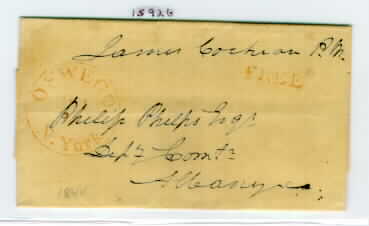 15926
James Cochran P.M.
FREE
OSWEGO
N. York
Philip Phelps Esqr
Depy Comtr
Albany
1844